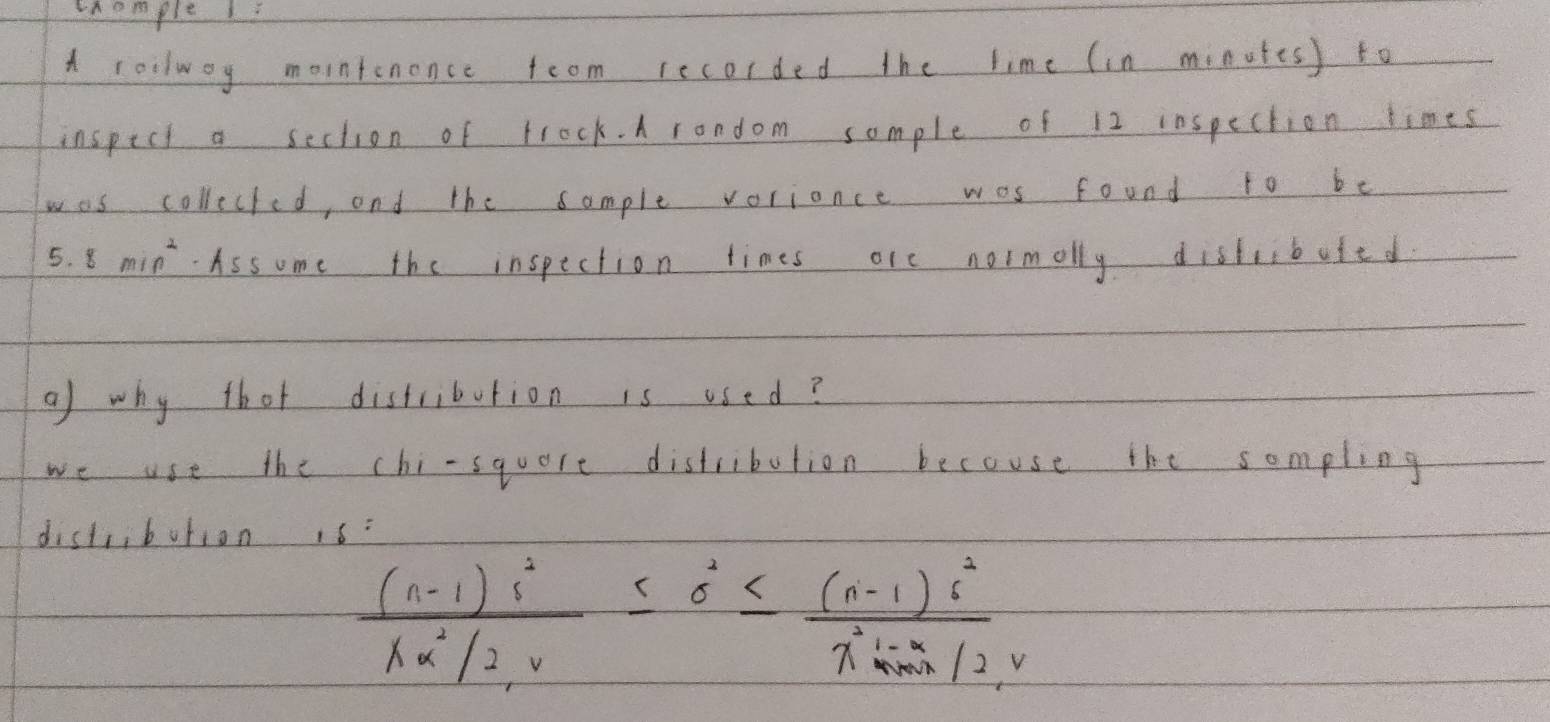 Example 1:
A railway maintenance team recorded the time (in minutes) to
inspect a section of track. A random sample of 12 inspection times
was collected, and the sample variance was found to be
5.8 min². Assume the inspection times are normally distributed.
a) why that distribution is used?
we use the chi-square distribution because the sampling
distribution is:
(n-1) s² / χ²α/2, v ≤ σ² ≤ (n-1) s² / χ²1-α/2, v